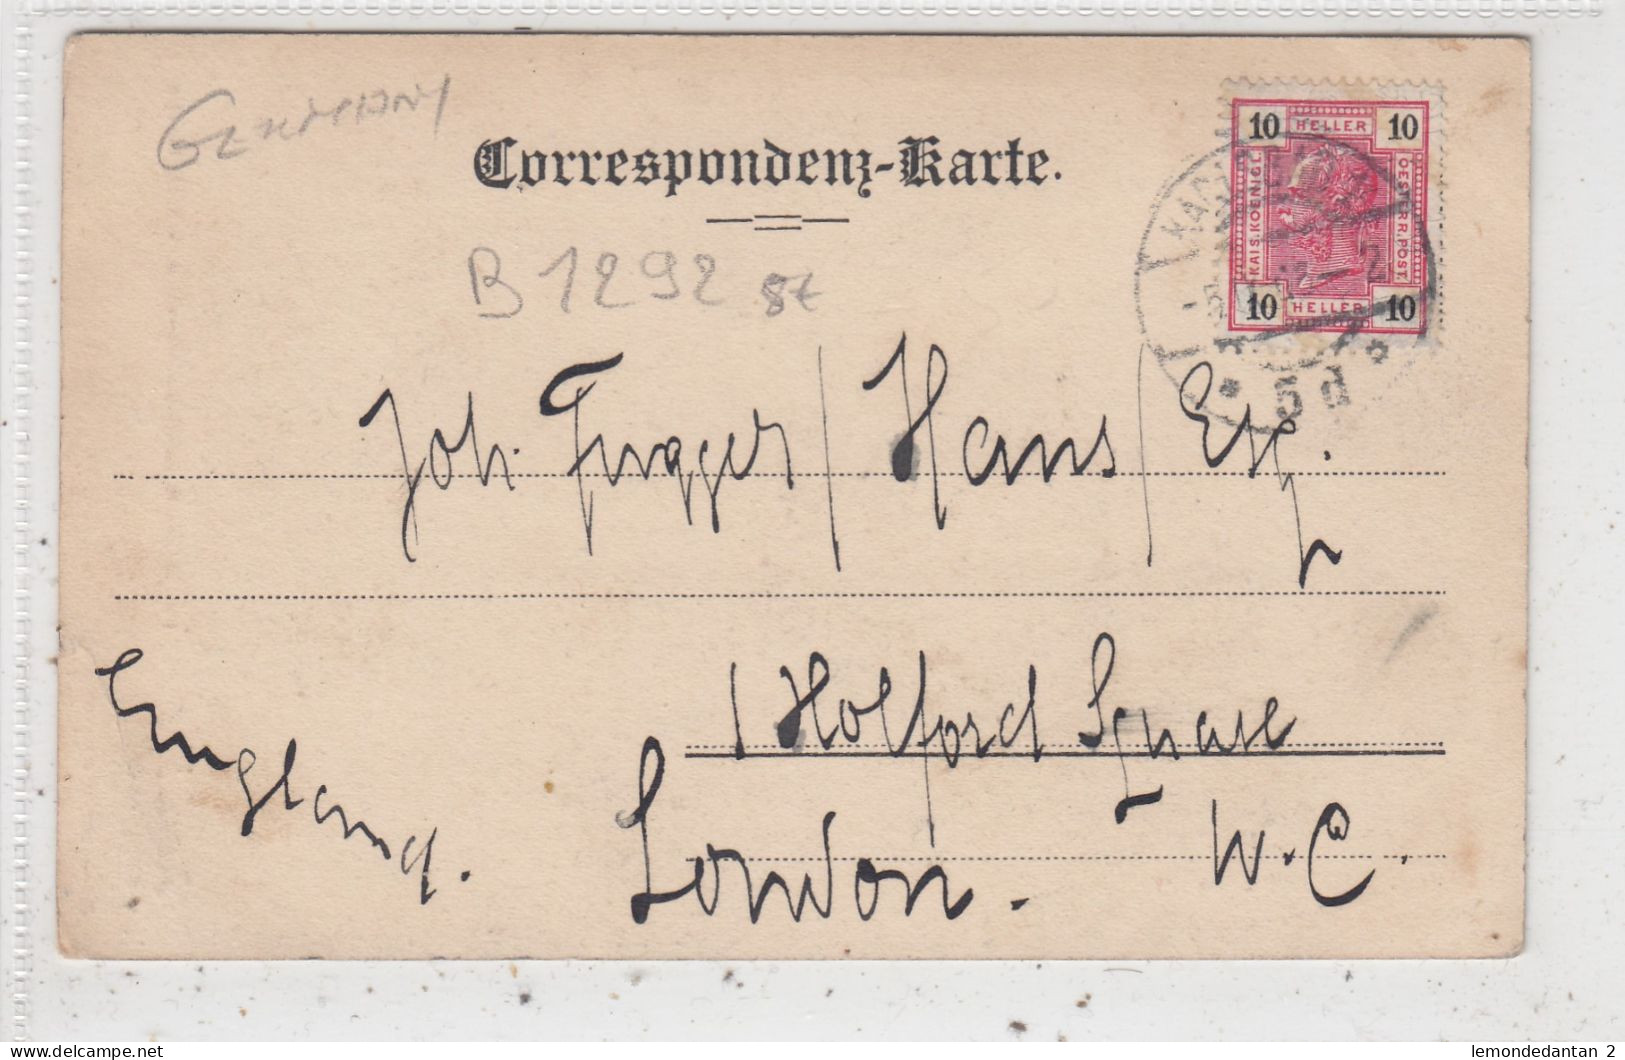 GERMANY
Correspondenz-Karte.
B 1292
10 HELLER 10
KAIS. KOENIGL. OESTERR. POST.
10 HELLER 10
5d
Joh. Fugger / Hans / Esq.
1 Holford Square
England.
London. W.C.
lemondedantan 2
delcampe.net